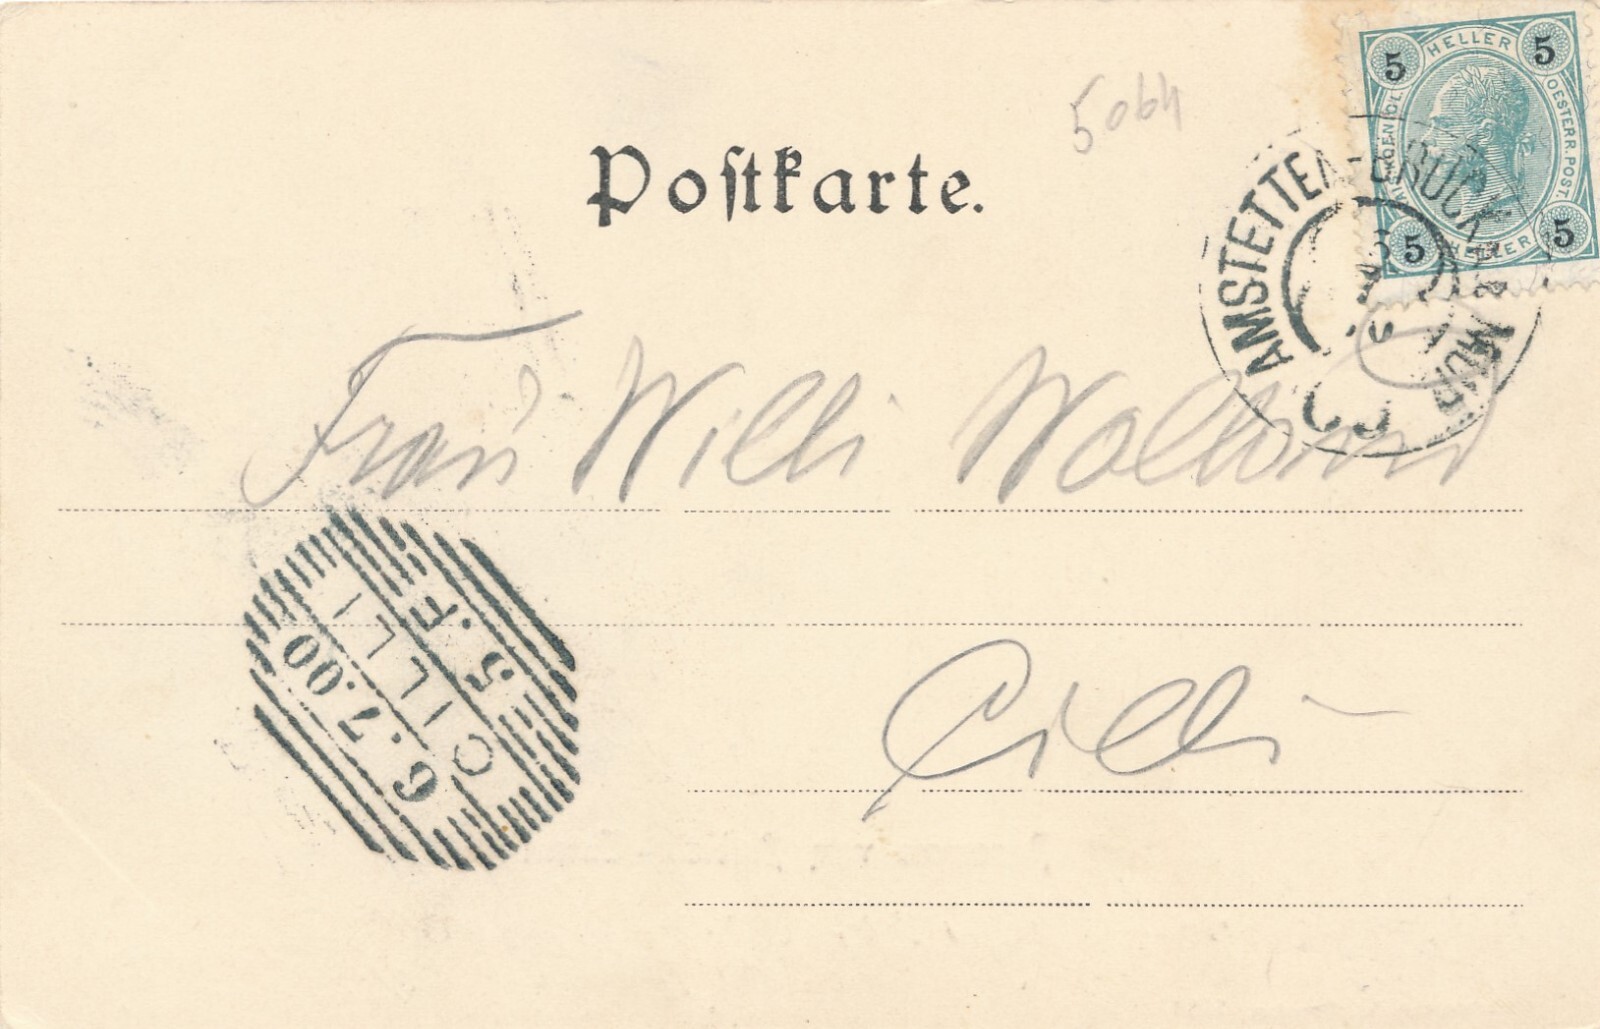 5064
HELLER
5 5
KAIS. KOENIGL. OESTERR. POST.
5 5
HELLER
Postkarte.
AMSTETTEN-BRUCK
Frau Willi
Cilli
CILLI
5.F
6.7.00